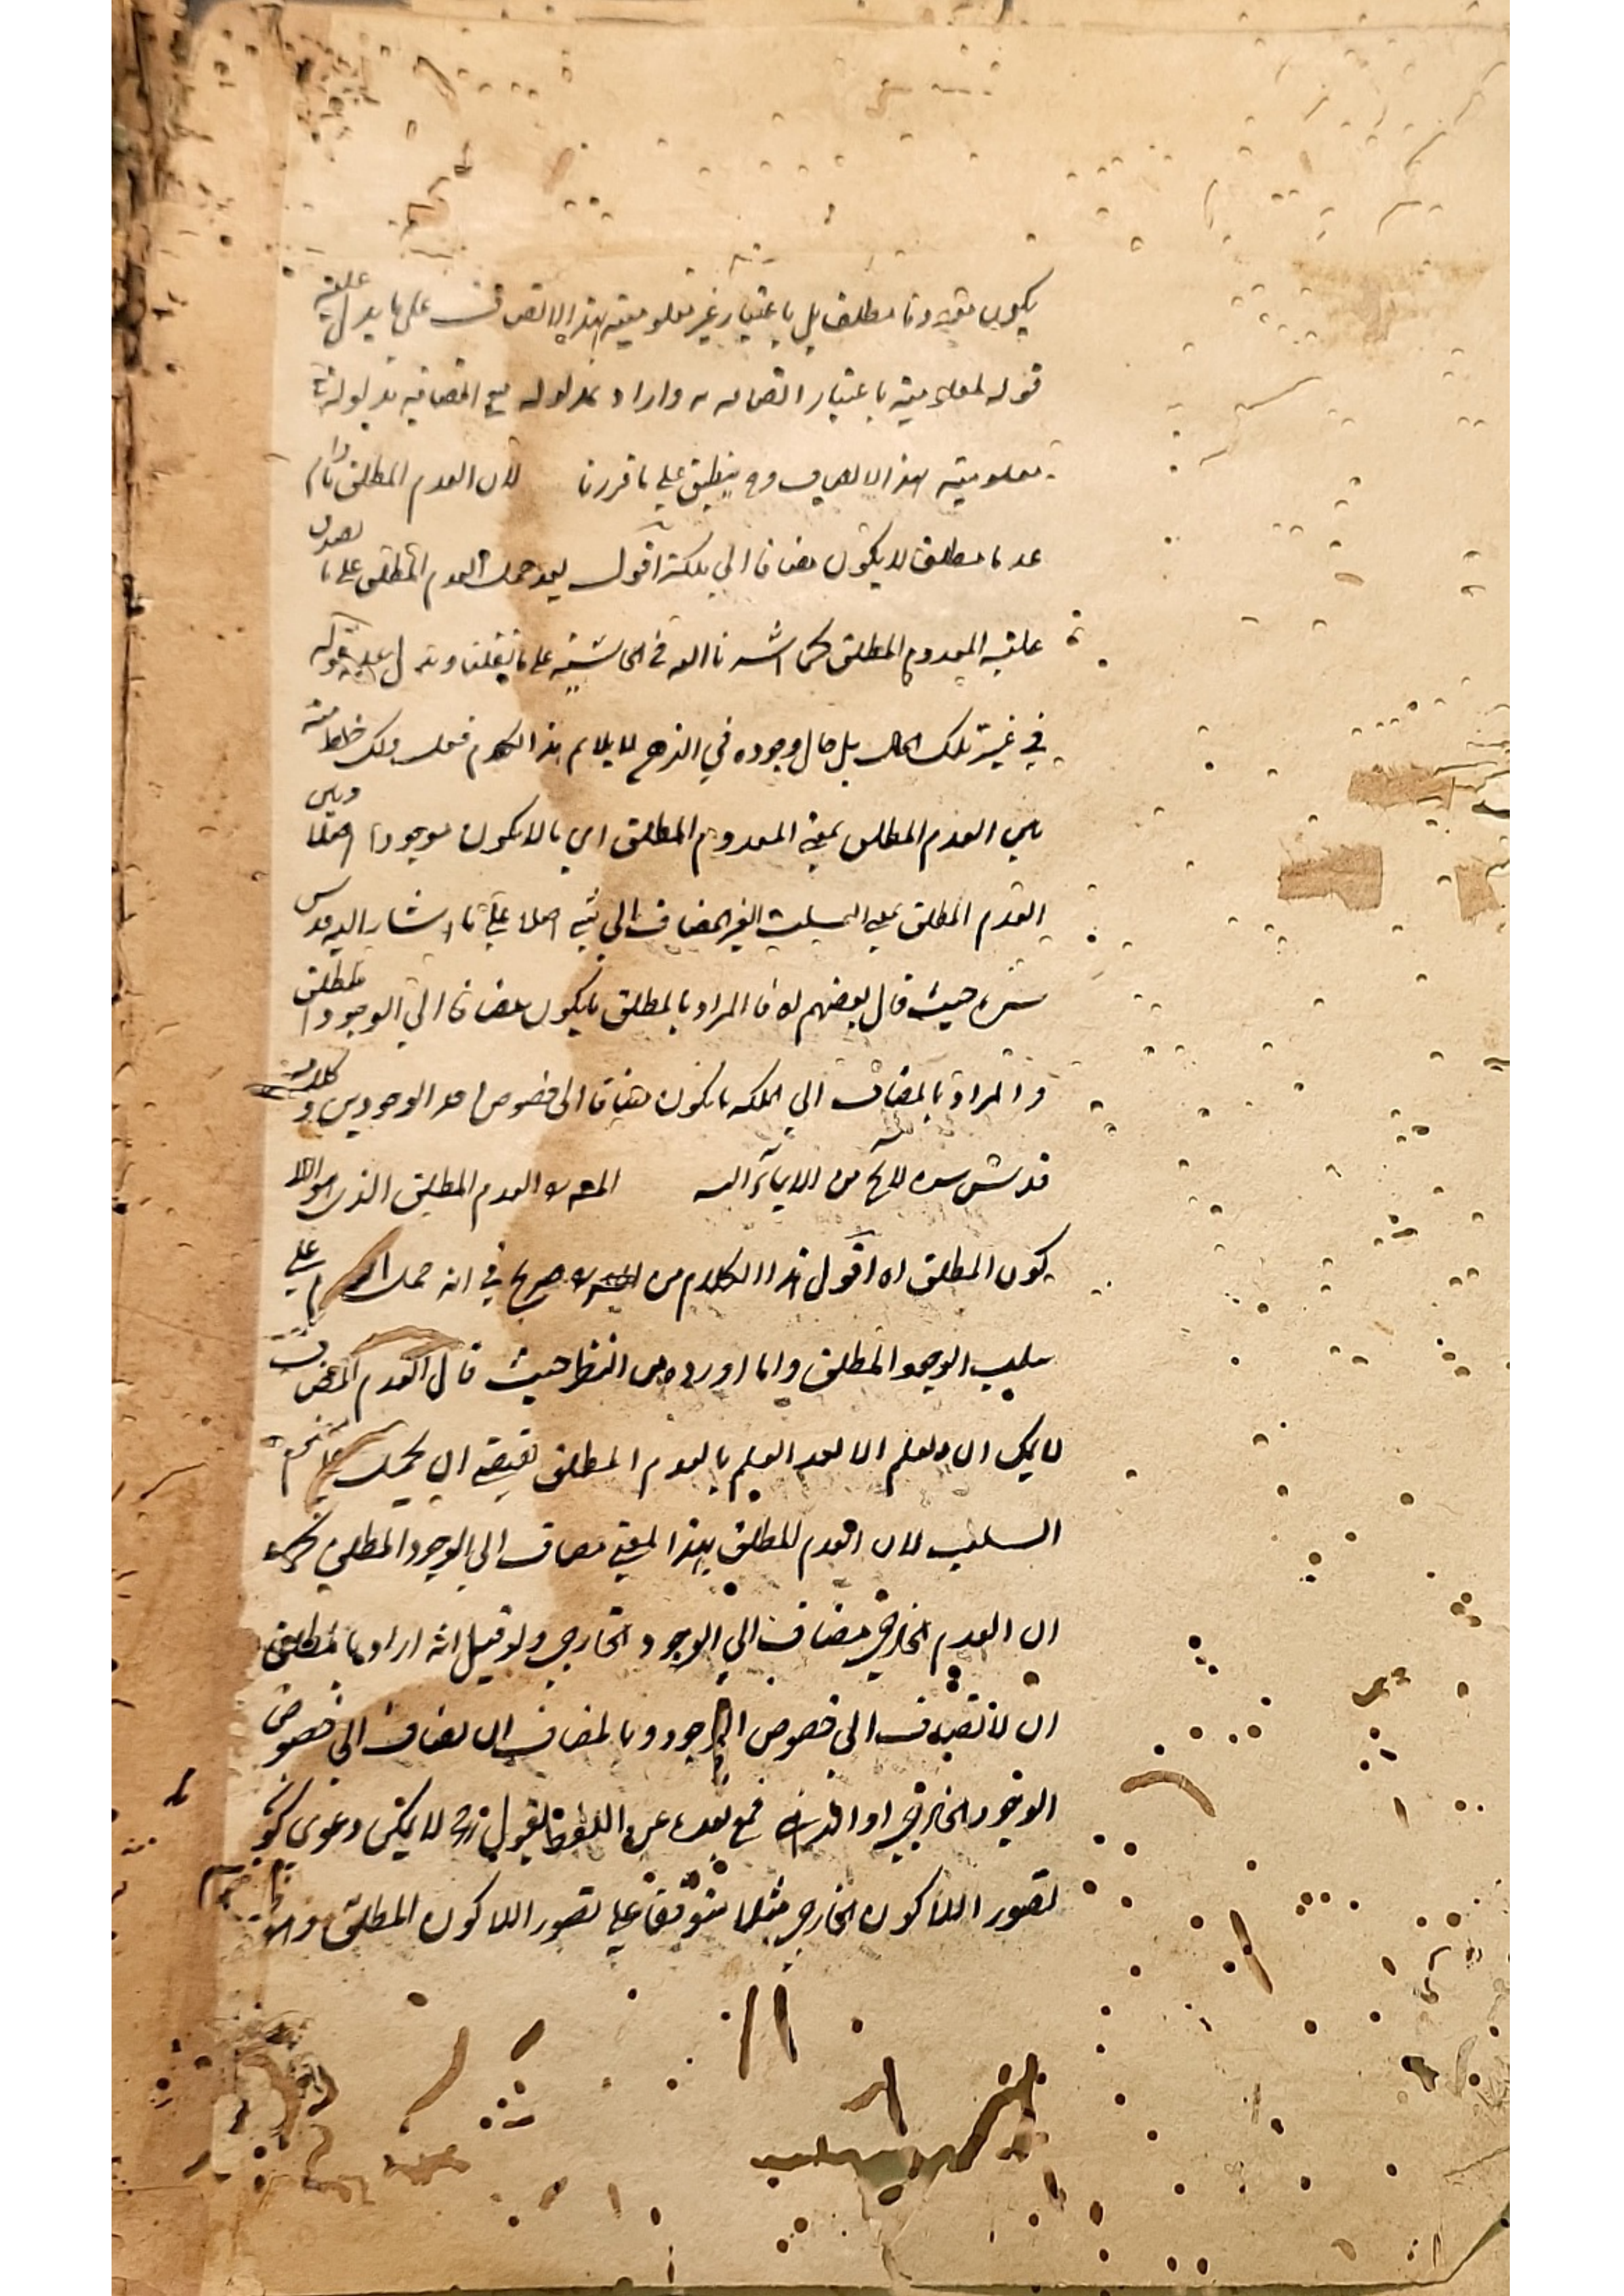 يكون مقيدا مطلقا بل باعتبار غير معلوميته بهذا الاتصاف على ما يدل عليه
قوله لمعلوميته باعتبار اتصافه به واراد بمدلوله مع اتصافه
معلوميته بهذا الاتصاف وح ينطبق على ما قررنا لان العدم المطلق مادام
عدما مطلقا لا يكون مضافا الى ملكة اقول بعد حمل العدم المطلق على ما يصدق
عليه المعدوم المطلق كما اشرنا اليه في الحاشية على ما نقلنا ويدل عليه قوله
في غير تلك الحال بل حال وجوده في الذهن لا يلايم هذا الكلام فعل ذلك خلط منه
بين العدم المطلق بمعنى المعدوم المطلق اي ما لا يكون موجودا اصلا وبين
العدم المطلق بمعنى السلب الغير المضاف الى شيء اصلا على ما اشار اليه قدس
سره حيث قال بعضهم المراد بالمطلق ما يكون مضافا الى الوجود المطلق
والمراد بالمضاف الى الملكة ما يكون مضافا الى خصوص احد الوجودين وكلامه
قدس سره لا يخ من الايماء اليه العدم المطلق الذي هو اللا
كون المطلق اه اقول هذا الكلام من صريح في انه حمل على
سلب الوجود المطلق واما اورده من النظر حيث قال العدم المضاف
لا يمكن ان يعلم الا بعد العلم بالعدم المطلق يقتضي ان يحمل على
السلب لان العدم المطلق بهذا المعنى مضاف الى الوجود المطلق كما
ان العدم الخارجي مضاف الى الوجود الخارجي ولو قيل انه اراد بالمطلق
ان لا تضاف الى خصوص الوجود وبالمضاف ان يضاف الى خصوص
الوجود الخارجي او الذهني فمع بعده عن اللفظ نقول ح لا يمكن دعوى كون
تصور اللاكون الخارجي مثلا متوقفا على تصور اللاكون المطلق